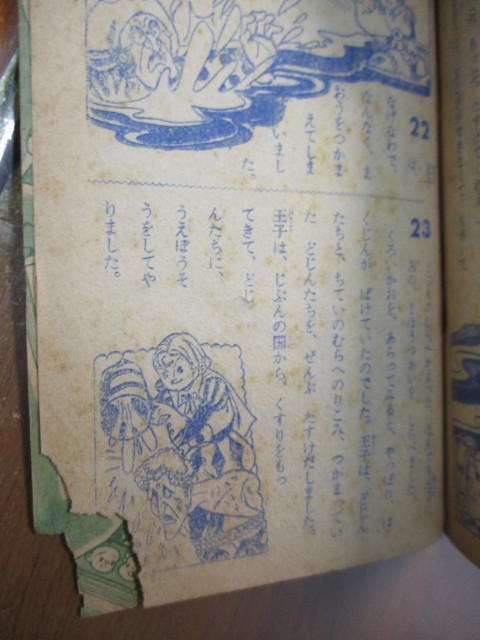 22
なげなわで、
なんなく、ま
おうをつかま
えてしま
いまし
た。
23
くろいかおを、あらってみると、やっぱり、は
くじんが ばけていたのでした。王子は、どじん
たちと、ちていのむらへのりこみ、つかまってい
た どじんたちを、ぜんぶ たすけだしました。
王子は、じぶんの国から、くすりをもっ
てきて、どじ
んたちに、
うえぼうそ
うをしてや
りました。